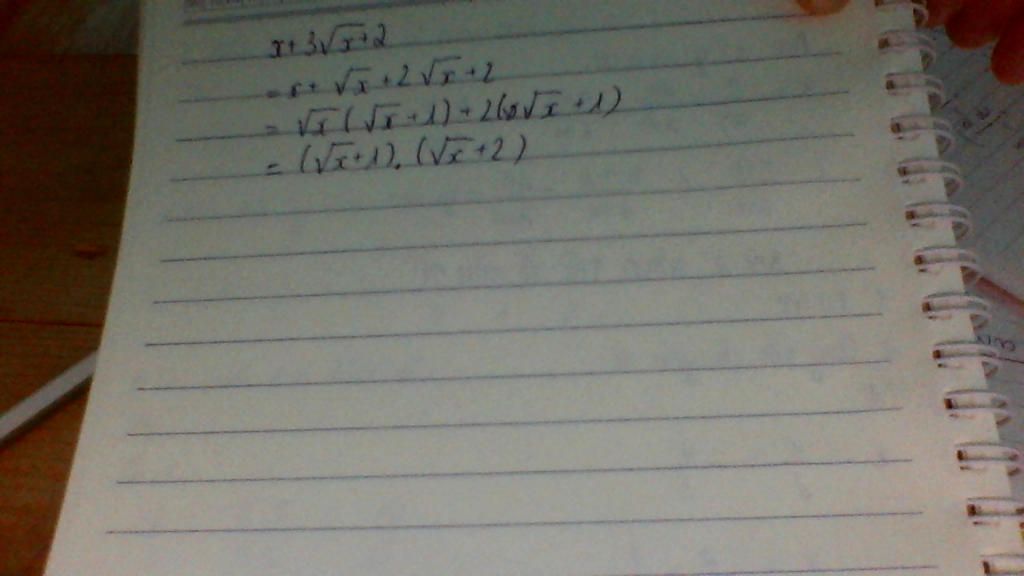 x+3√x+2
=x+√x+2√x+2
=√x(√x+1)+2(√x+1)
=(√x+1).(√x+2)